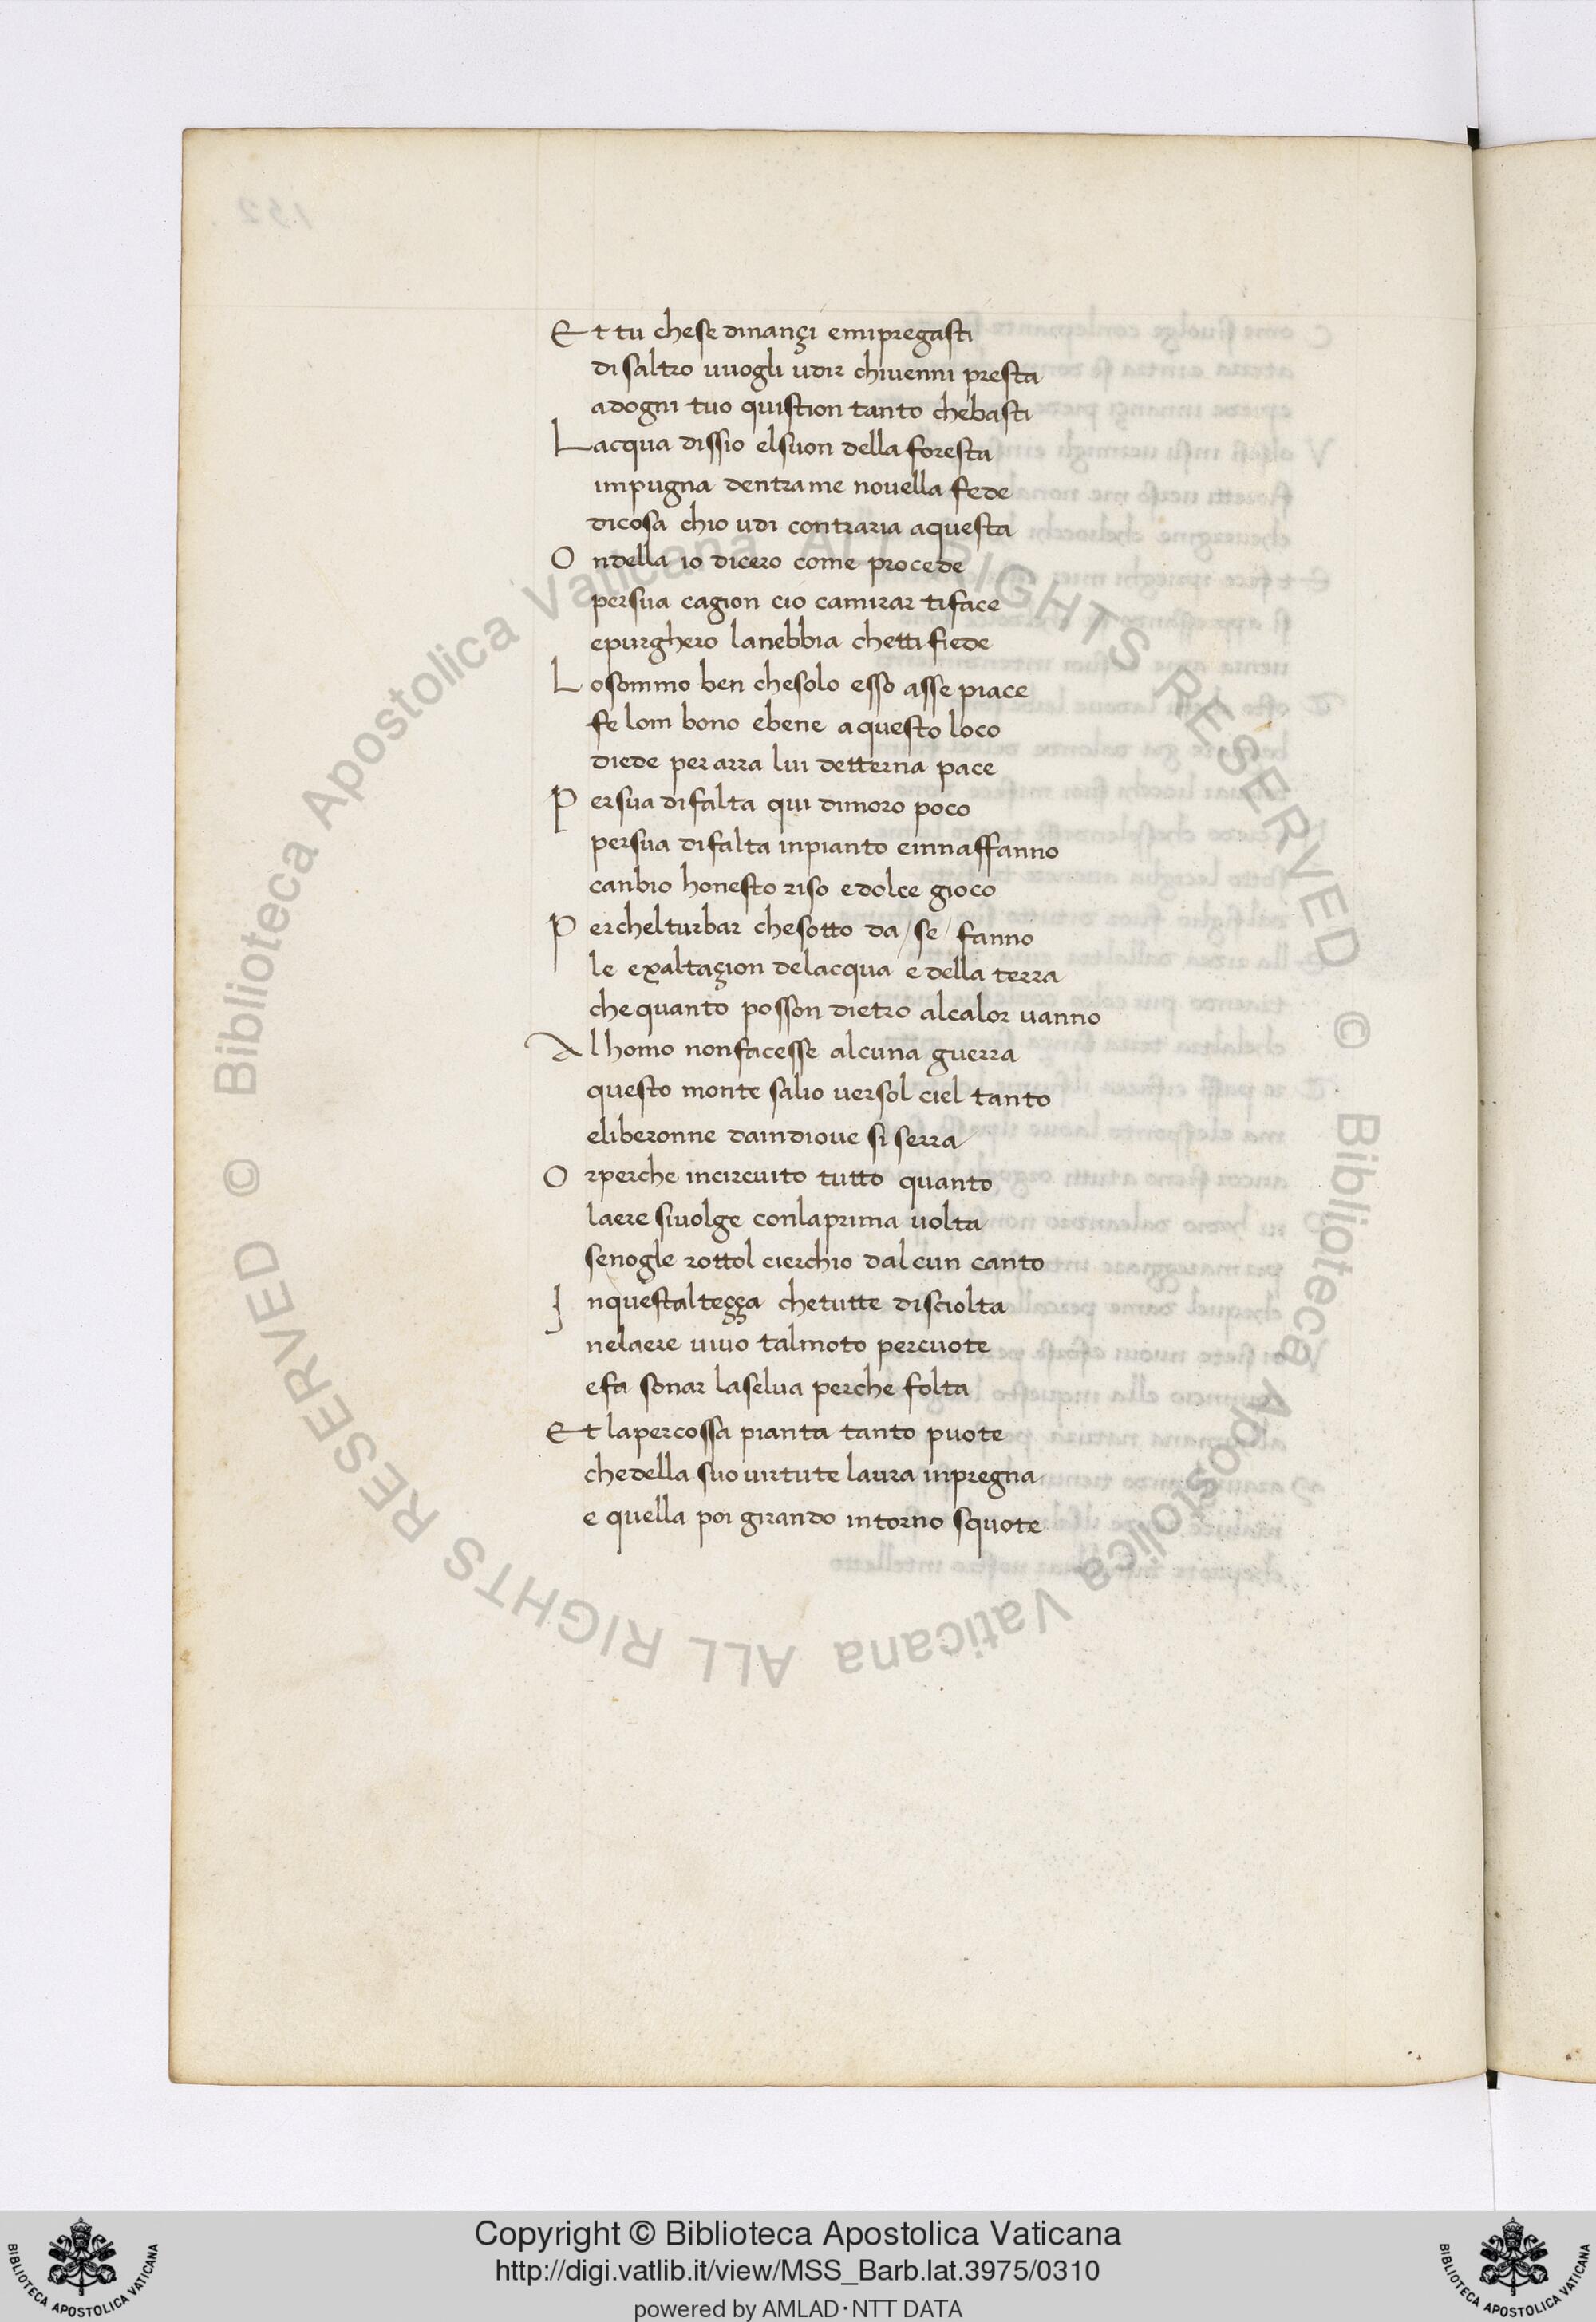 Et tu chese dinançi emipregasti
di saltro vuogli udir chiuenni presta
adogni tuo quistion tanto chebasti
Lacqua dissio elsuon della foresta
impugna dentrame nouella fede
dicosa chio udi contraria aquesta
Ondella io dicero come procede
persua cagion cio camirar tiface
epurghero lanebbia chetti fiede
Losommo ben chesolo esso asse piace
fe lom bono ebene aquesto loco
diede per arra lui detterna pace
Persua difalta qui dimoro poco
persua difalta inpianto einnaffanno
canbio honesto riso edolce gioco
Perchelturbar chesotto da/se/fanno
le exaltaçion delacqua e della terra
chequanto posson dietro alcalor uanno
Alhomo nonfacesse alcuna guerra
questo monte salio uersol ciel tanto
eliberonne daindioue si serra
Orperche incircuito tutto quanto
laere siuolge conlaprima uolta
senogle rottol cierchio dalcun canto
Inquestalteçça chetutte disciolta
nelaere uiuo talmoto percuote
efa sonar laselua perche folta
Et lapercossa pianta tanto puote
chedella suo uirtute laura inpregna
e quella poi girando intorno squote
152
© Biblioteca Apostolica Vaticana ALL RIGHTS RESERVED © Biblioteca Apostolica Vaticana ALL RIGHTS RESERVED
Copyright © Biblioteca Apostolica Vaticana
http://digi.vatlib.it/view/MSS_Barb.lat.3975/0310
powered by AMLAD·NTT DATA
BIBLIOTECA APOSTOLICA VATICANA
BIBLIOTECA APOSTOLICA VATICANA